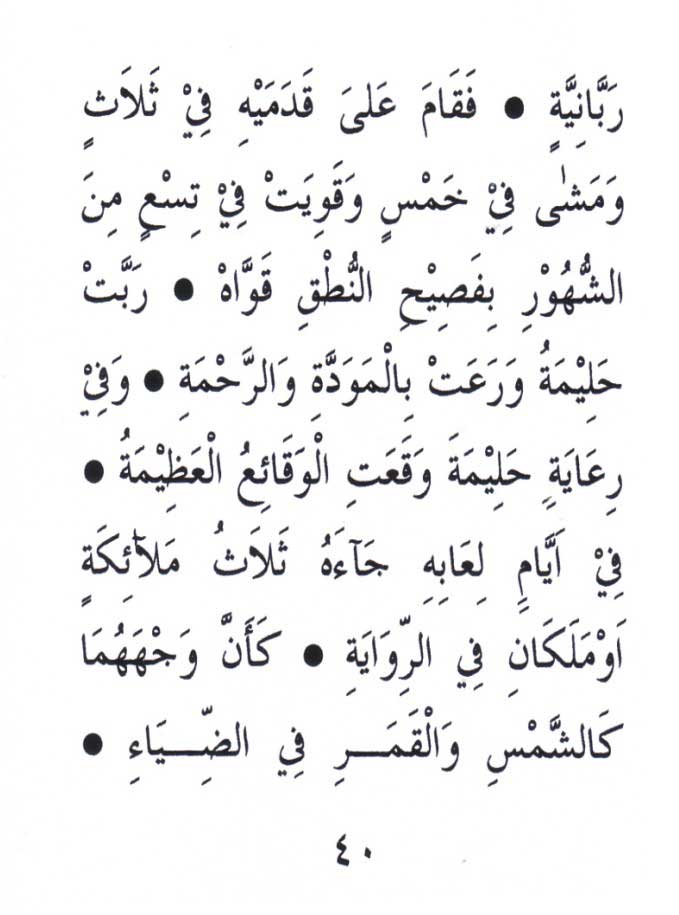 رَبَّانِيَّةٍ ● فَقَامَ عَلىَ قَدَمَيْهِ فِيْ ثَلَاثٍ
وَمَشٰى فِيْ خَمْسٍ وَقَوِيَتْ فِيْ تِسْعٍ مِنَ
الشُّهُوْرِ بِفَصِيْحِ النُّطْقِ قَوَّاهْ ● رَبَّتْ
حَلِيْمَةُ وَرَعَتْ بِالْمَوَدَّةِ وَالرَّحْمَةِ ● وَفِيْ
رِعَايَةٍ حَلِيْمَةَ وَقَعَتِ الْوَقَائِعُ الْعَظِيْمَةُ ●
فِيْ اَيَّامِ لِعَابِهِ جَآءَهُ ثَلَاثُ مَلَآئِكَةٍ
اَوْمَلَكَانِ فِي الرِّوَايَةِ ● كَأَنَّ وَجْهَهُمَا
كَالشَّمْسِ وَالْقَمَـــرِ فِي الضِّـــيَاءِ ●
٤٠